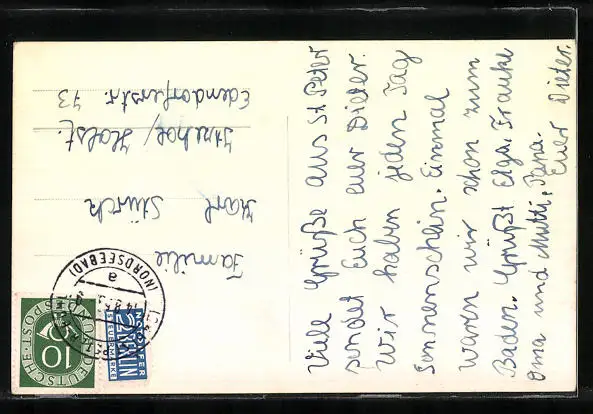 Viele Grüße aus St Peter
sendet Euch euer Dieter.
Wir haben jeden Tag
Sonnenschein. Einmal
waren wir schon zum
Baden. Grüßt Elga, Frauke
Oma und Mutti, Papa.
Euer Dieter.
Familie
Karl Stürck
Itzehoe/Holst.
Edendorferstr. 73
(NORDSEEBAD)
a
DEUTSCHE BUNDESPOST
10
NOTOPFER
2 BERLIN
STEUERMARKE